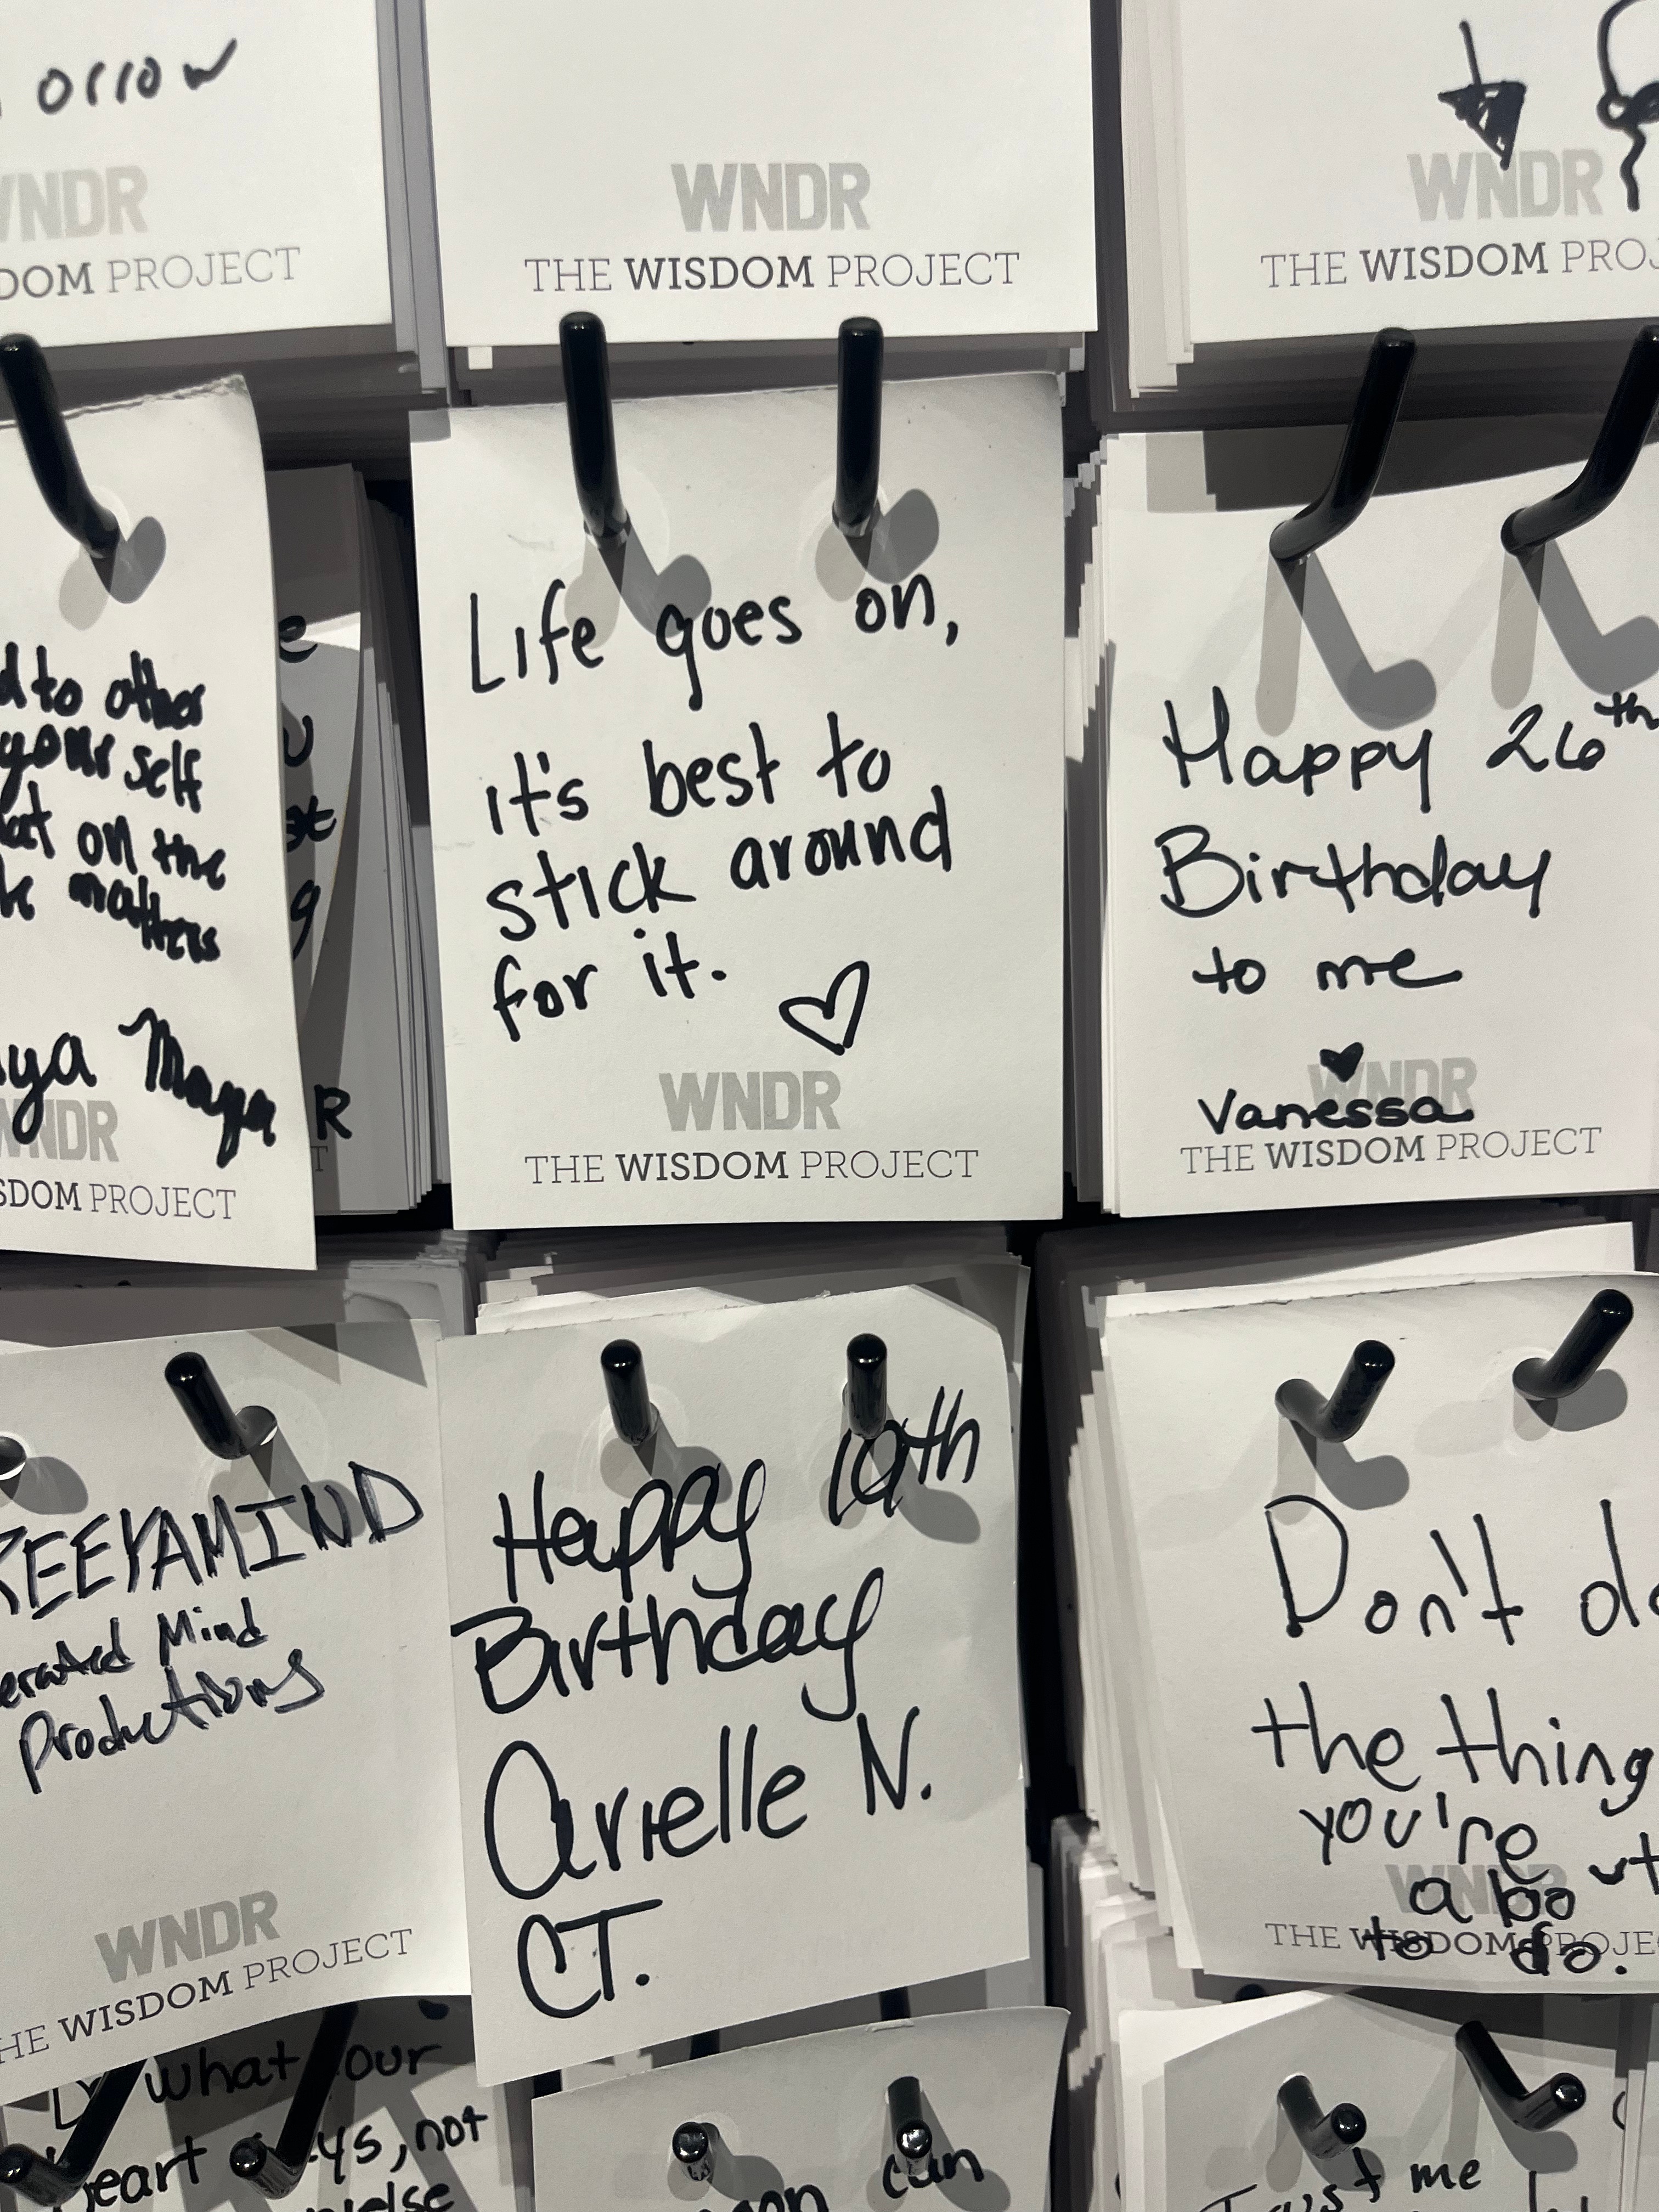 WNDR
THE WISDOM PROJECT
WNDR
THE WISDOM
WNDR
PROJECT
to other
your self
on the
matters
Maya
PROJECT
R
Life goes on,
it's best to
stick around
for it.
WNDR
THE WISDOM PROJECT
Happy 26th
Birthday
to me
WNDR
Vanessa
THE WISDOM PROJECT
Mind
Productions
WNDR
THE WISDOM PROJECT
Happy 19th
Birthday
Arielle N.
CT.
Don't do
the thing
you're
about
WNDR
to do.
THE WISDOM PROJECT
what your
says, not
can
Trust me